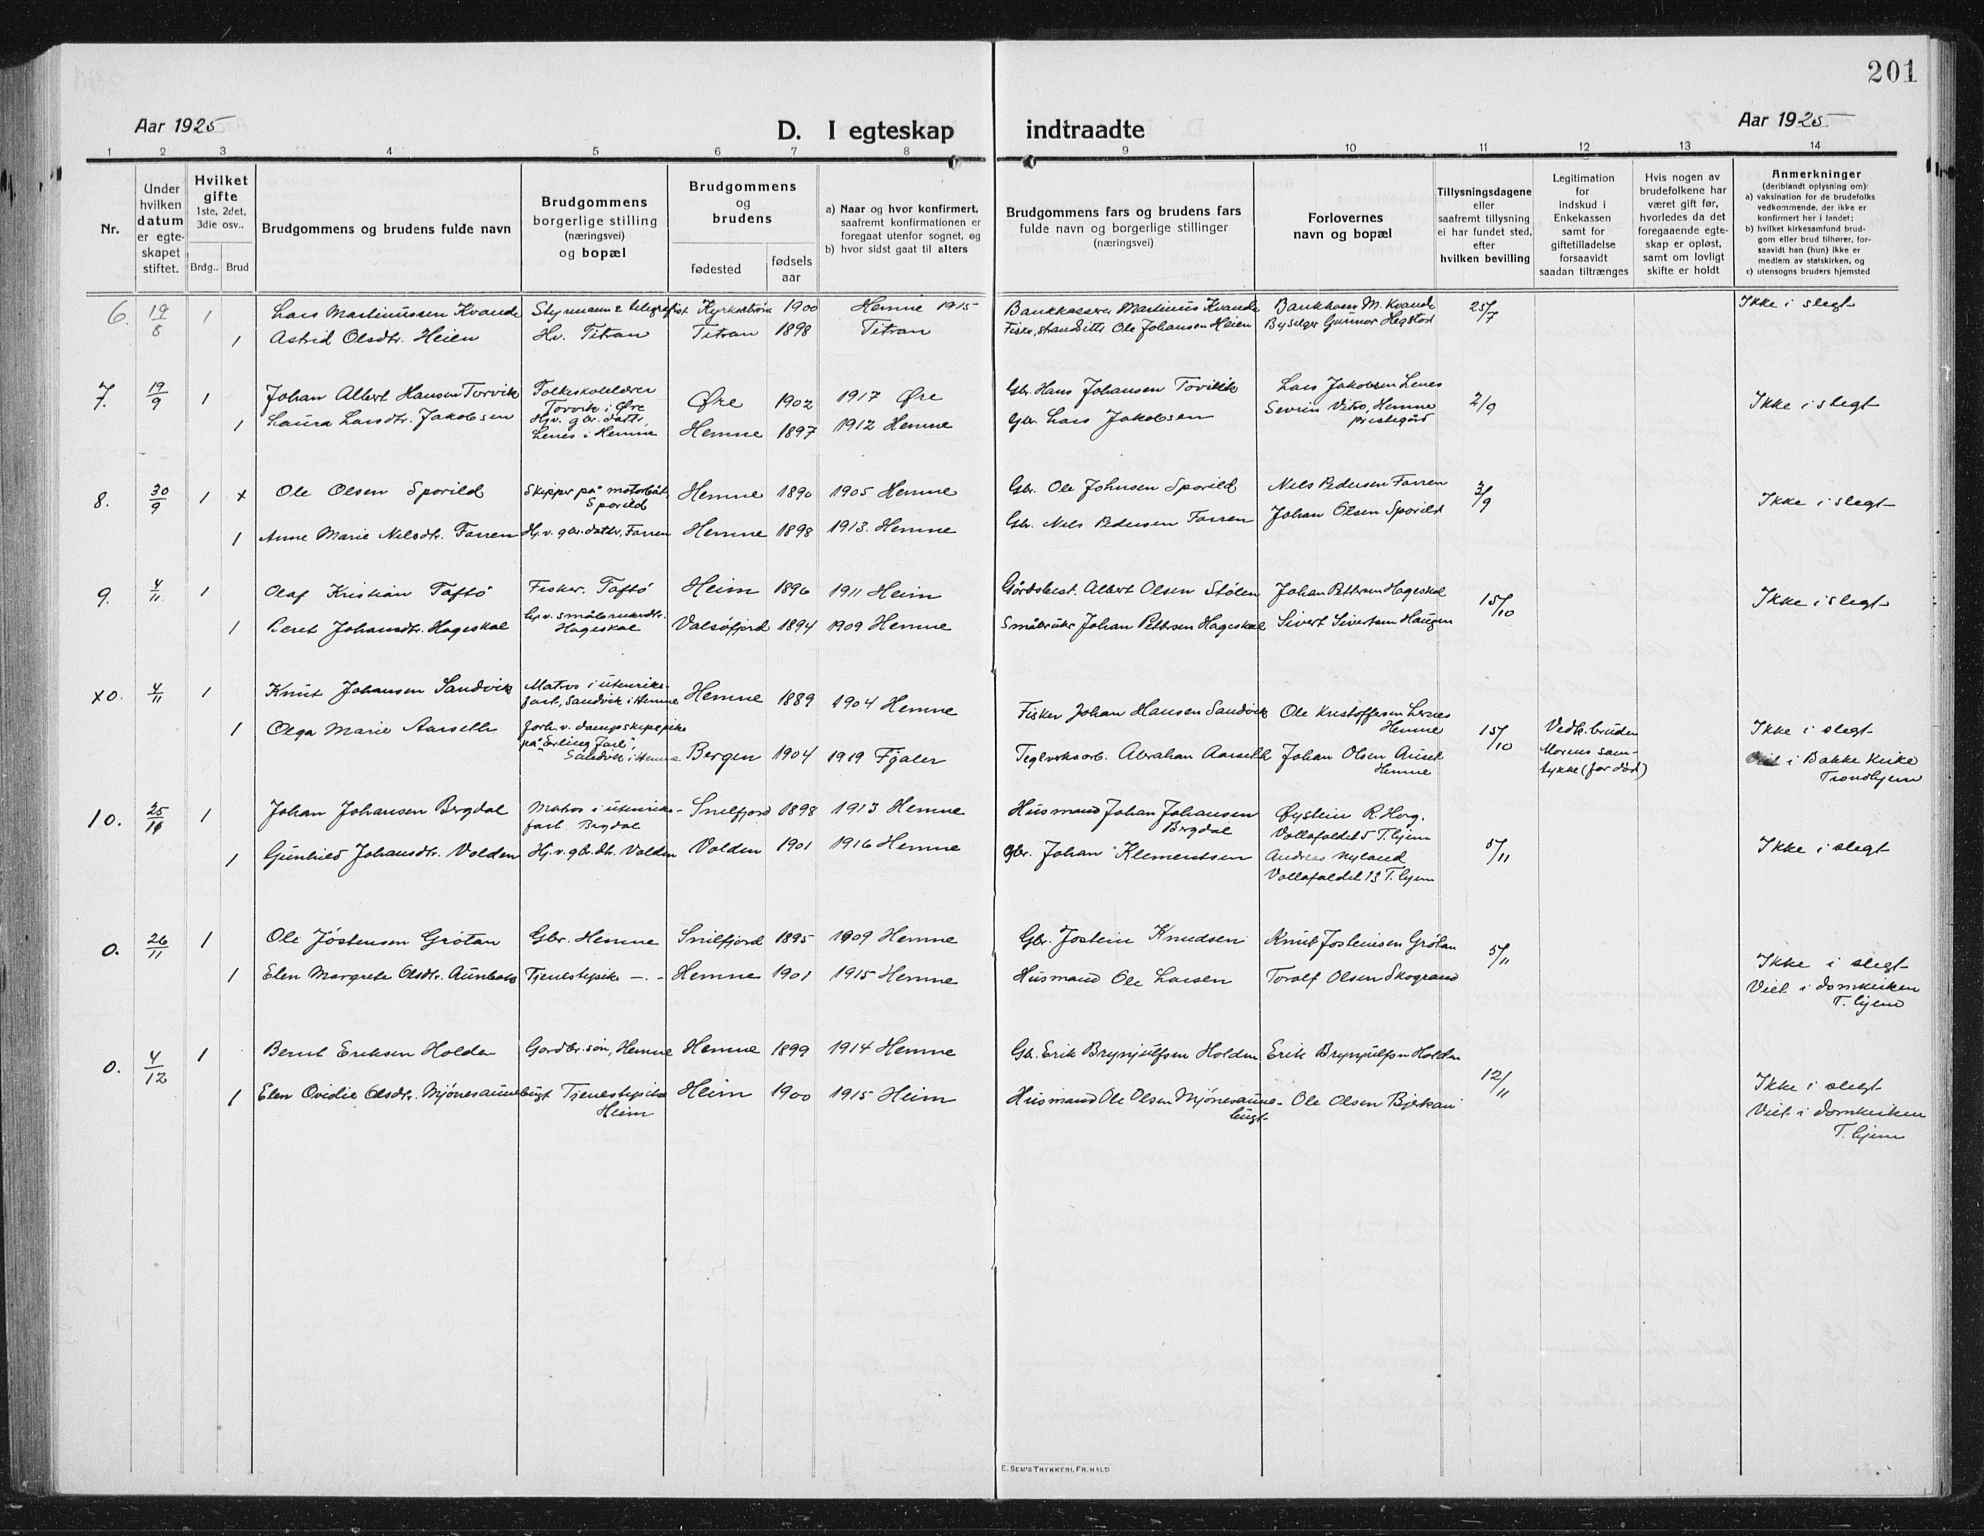 201
Aar 1925
D. I egteskap indtraadte
Aar 1925
1 2 3 4 5 6 7 8 9 10 11 12 13 14
Nr.
Under hvilken datum er egteskapet stiftet.
Hvilket gifte 1ste, 2det, 3die osv..
Brdg.. Brud
Brudgommens og brudens fulde navn
Brudgommens borgerlige stilling (næringsvei) og bopæl
Brudgommens og brudens
fødested
fødsels aar
a) Naar og hvor konfirmert, saafremt konfirmationen er foregaat utenfor sognet, og
b) hvor sidst gaat til alters
Brudgommens fars og brudens fars fulde navn og borgerlige stillinger (næringsvei)
Forlovernes navn og bopæl
Tillysningsdagene eller saafremt tillysning ei har fundet sted, efter hvilken bevilling
Legitimation for indskud i Enkekassen samt for giftetilladelse forsaavidt saadan tiltrænges
Hvis nogen av brudefolkene har været gift før, hvorledes da det foregaaende egteskap er opløst, samt om lovligt skifte er holdt
Anmerkninger
(deriblandt oplysning om):
a) vaksination for de brudefolks vedkommende, der ikke er konfirmert her i landet;
b) hvilket kirkesamfund brudgom eller brud tilhører, forsaavidt han (hun) ikke er medlem av statskirken, og
c) utensogns bruders hjemsted
6. 19/8 1 Lars Martinussen Kvande Styrmann & telegrafist 1900 Hemne 1915 Bankkaserer Martinus Kvande Bankkaser M. Kvande 25/7 Ikke i slegt
1 Astrid Olsdtr. Heien Hv. Titran Titran 1898 Titran Ole Johansen Heien Gunnar Hegstad
7. 19/9 1 Johan Albert Hansen Torvik Folkeskolelærer Torvik i Øre Øre 1902 1917 Øre Gbr. Hans Johansen Torvik Lars Jakobsen Lenes 2/9 Ikke i slegt
1 Laura Larsdtr. Jakobsen Hj.v. gbr. dattr. Lenes i Hemne Hemne 1897 1912 Hemne Gbr. Lars Jakobsen Sevrin Vitso, Hemne prestegård
8. 30/9 1 x Ole Olsen Sporild Skipper på motorbåt Sporild Hemne 1890 1905 Hemne Gbr. Ole Johnsen Sporild Nils Pedersen Farren 3/9 Ikke i slegt
1 Anne Marie Nilsdtr. Farren Hj.v. gbr. dattr., Farren Hemne 1898 1913 Hemne Gbr. Nils Pedersen Farren Johan Olsen Sporild
9. 4/11 1 Olaf Kristian Taftö Fisker. Taftö Heim 1896 1911 Heim Gårdsbest. Albert Olsen Stölen Johan Pettersen Hageskal 15/10 Ikke i slegt
1 Beret Johansdtr. Hageskal Hj.v. småbrukerdtr. Hageskal Valsöfjord 1894 1909 Hemne Småbruker Johan Pettersen Hageskal Sivert Sivertsen Haugen
10. 4/11 1 Knut Johansen Sandvik Matros i utenriksfart, Sandvik i Hemne Hemne 1889 1904 Hemne Fisker Johan Hansen Sandvik Ole Kristoffersen Lernes Hemne 15/10 Vedk. bruden Morens samtykke (far död) Ikke i slegt
1 Olga Marie Aarseth Forh.v. dampskipspike på "Erling Jarl", Sandvik i Hemne Bergen 1904 1919 Fjaler Teglverksarb. Abraham Aarseth Johan Olsen Auset Hemne Viet i Bakke Kirke Trondhjem
10. 25/11 1 Johan Johansen Bergdal Matros i utenriksfart Bergdal Snilfjord 1898 1913 Hemne Husmand Johan Johansen Bergdal Øystein R. Horg. Vollafaldet 5 T.hjem 5/11 Ikke i slegt
1 Gunhild Johansdtr. Volden Hj.v. gbr. dtr. Volden Volden 1901 1916 Hemne Gbr. Johan Klementsen Andreas Nyland Vollafaldet 13 T.hjem
0. 26/11 1 Ole Jöstensen Grötan Gbr. Hemne Snilfjord 1895 1909 Hemne Gbr. Jostein Knudsen Knut Josteinsen Grötan 5/11 Ikke i slegt
1 Elen Margrete Olsdtr. Aunbakk Tjenestepike —.— Hemne 1901 1915 Hemne Husmand Ole Larsen Toralf Olsen Skogrand Viet i domkirken T.hjem
0. 4/12 1 Bernt Eriksen Holden Gardbr.søn, Hemne Hemne 1899 1914 Hemne Gb. Erik Brynjulfsen Holden Erik Brynjulfsen Holden 12/11 Ikke i slegt
1 Elen Ovidie Olsdtr. Mjönesaunebugt Tjenestepike Heim Heim 1900 1915 Heim Husmand Ole Olsen Mjönesaunebugt Ole Olsen Bjerkan Viet i domkirken T.hjem
E. SEM'S TRYKKERI, FR.HALD